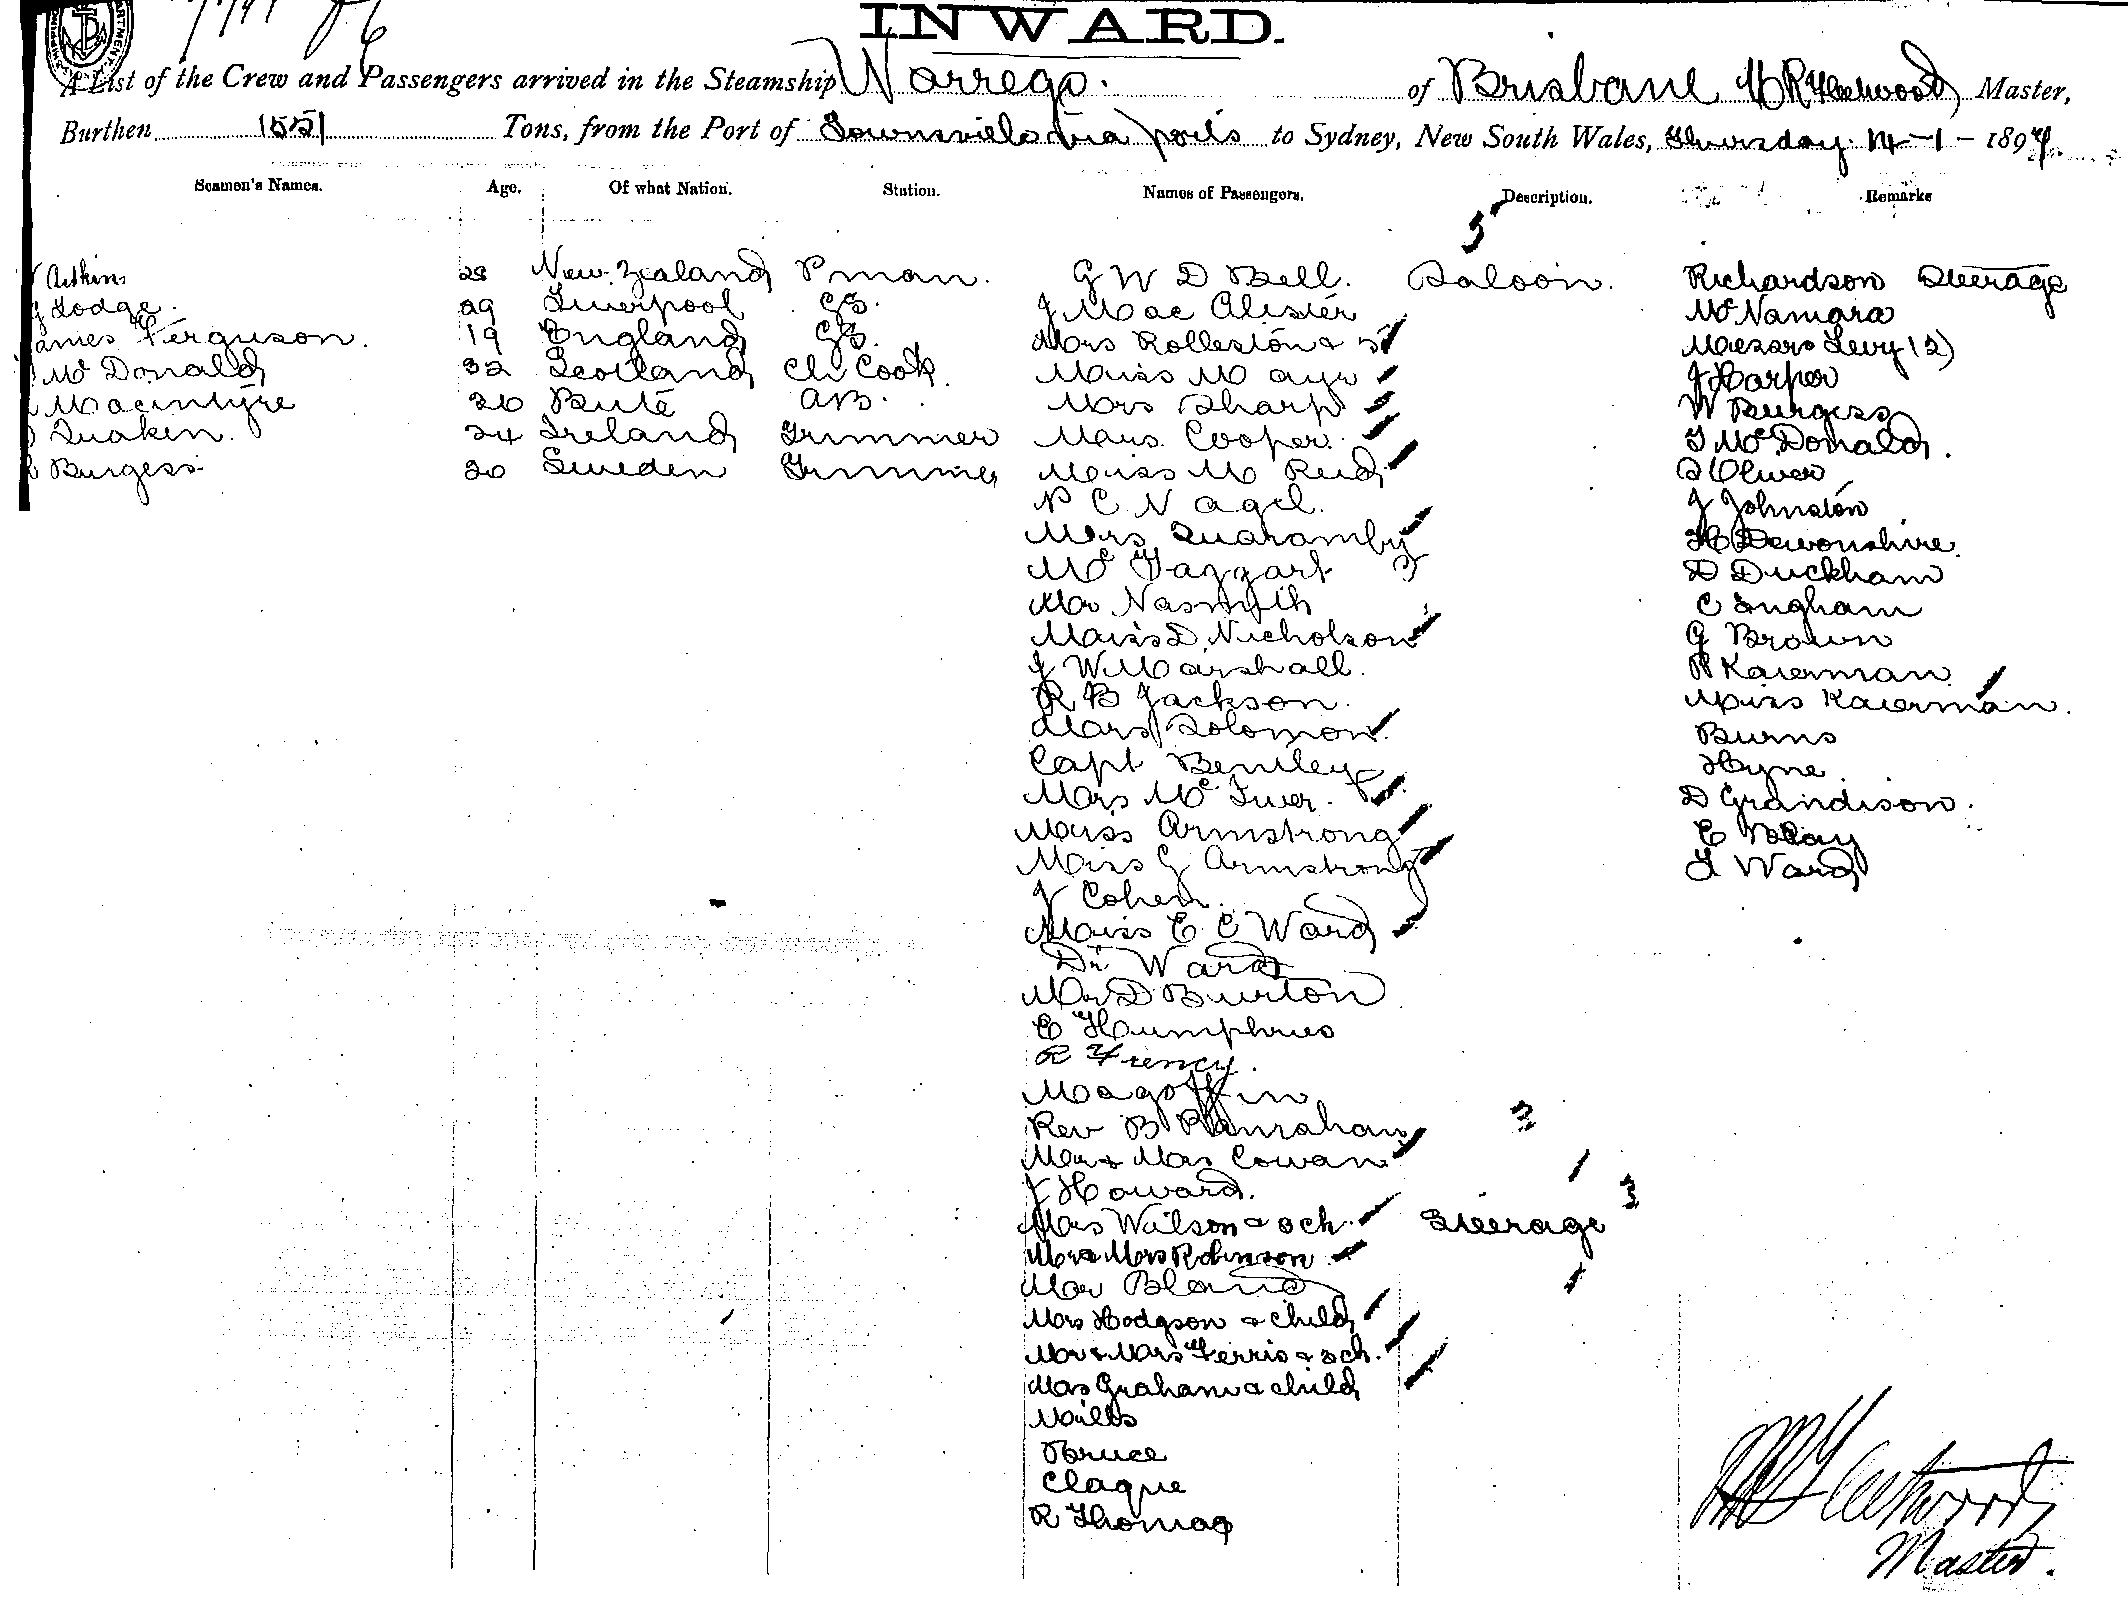 INWARD.
A List of the Crew and Passengers arrived in the Steamship Warrego. of Brisbane Fleetwood Master,
Burthen 1551 Tons, from the Port of Townsville via ports to Sydney, New South Wales, Thursday 14-1-1897
Seamen's Names. Age. Of what Nation. Station. Names of Passengers. Description. Remarks
Aitkins 28 New Zealand Pman. G W D Bell. Saloon. Richardson Steerage
G Lodge. 29 Liverpool GS. J Mac Alister McNamara
James Ferguson. 19 England GS. Mrs Rolleston & Messrs Levy (2)
McDonald 32 Scotland Ch Cook. Miss M Ayr J Harper
Macintyre 26 Bute AB. Mrs Sharp W Burgess
Quaken. 24 Ireland Trimmer Mrs. Cooper. T McDonald.
Burgess 20 Sweden Trimmer Miss M Reid Oliver
P C Nagel. J Johnston
Mrs Quaramby H Devonshire.
McTaggart D Duckham
Mr Nasmyth C Ingham
Miss D. Nicholson G Brown
J W Marshall. P Kaverman
R B Jackson. Miss Kaverman.
Mrs Solomon. Burns
Capt Bentley Hyne.
Mrs McIver. D Grandison.
Miss Armstrong E Blay
Miss G Armstrong T Ward
J Cohen.
Miss E C Ward
Dr Ward
Mr D Burton
E Humphries
R Freney.
Magoffin
Rev B Hanrahan
Mr & Mrs Cowan
J Howard.
Mrs Wilson & 3 ch. Steerage
Mr & Mrs Robinson
Mr Bland
Mrs Hodgson & child
Mr & Mrs Ferris & 3 ch.
Mrs Graham & child
Mills
Bruce
Clague
R Thomas
Fleetwood
Master.